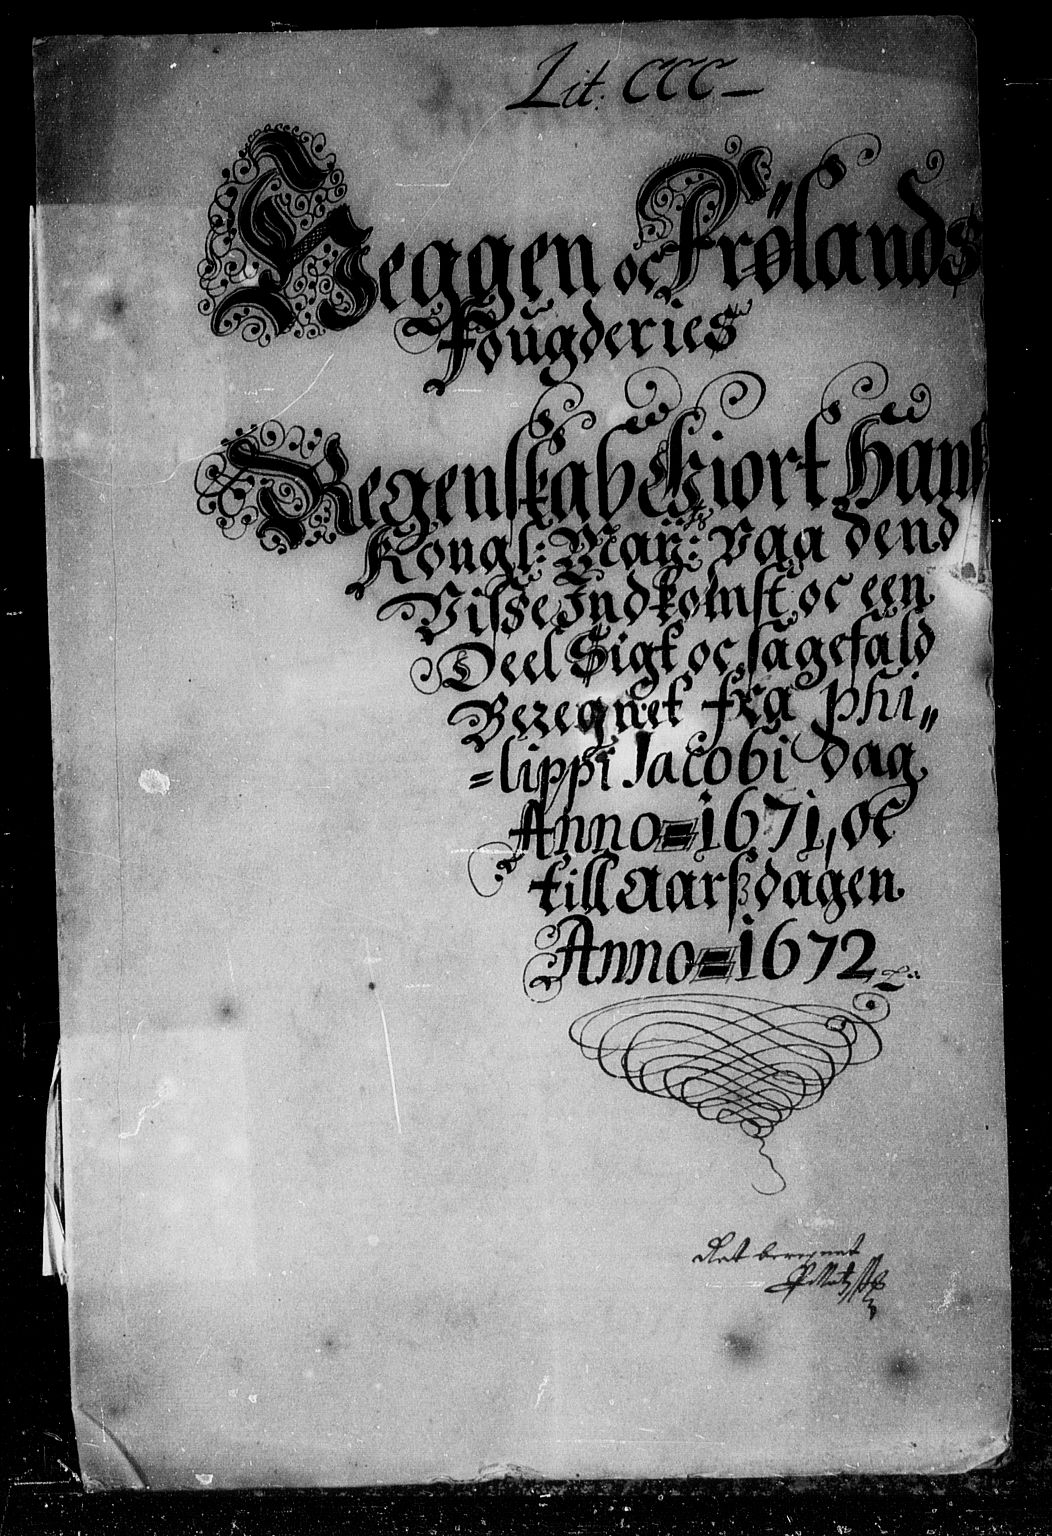 Lit: CCC –
Heggen oc Frølands
Foügderies
Regenskab Giort Hans
Kongl: May:tz paa dend
Visse Indkomst oc een
Deel Sigt oc sagefald
Beregnet fra Phi„
=lippi Jacobi dag
Anno=1671, oc
till Aarßdagen
Anno=1672
Ret beregnet